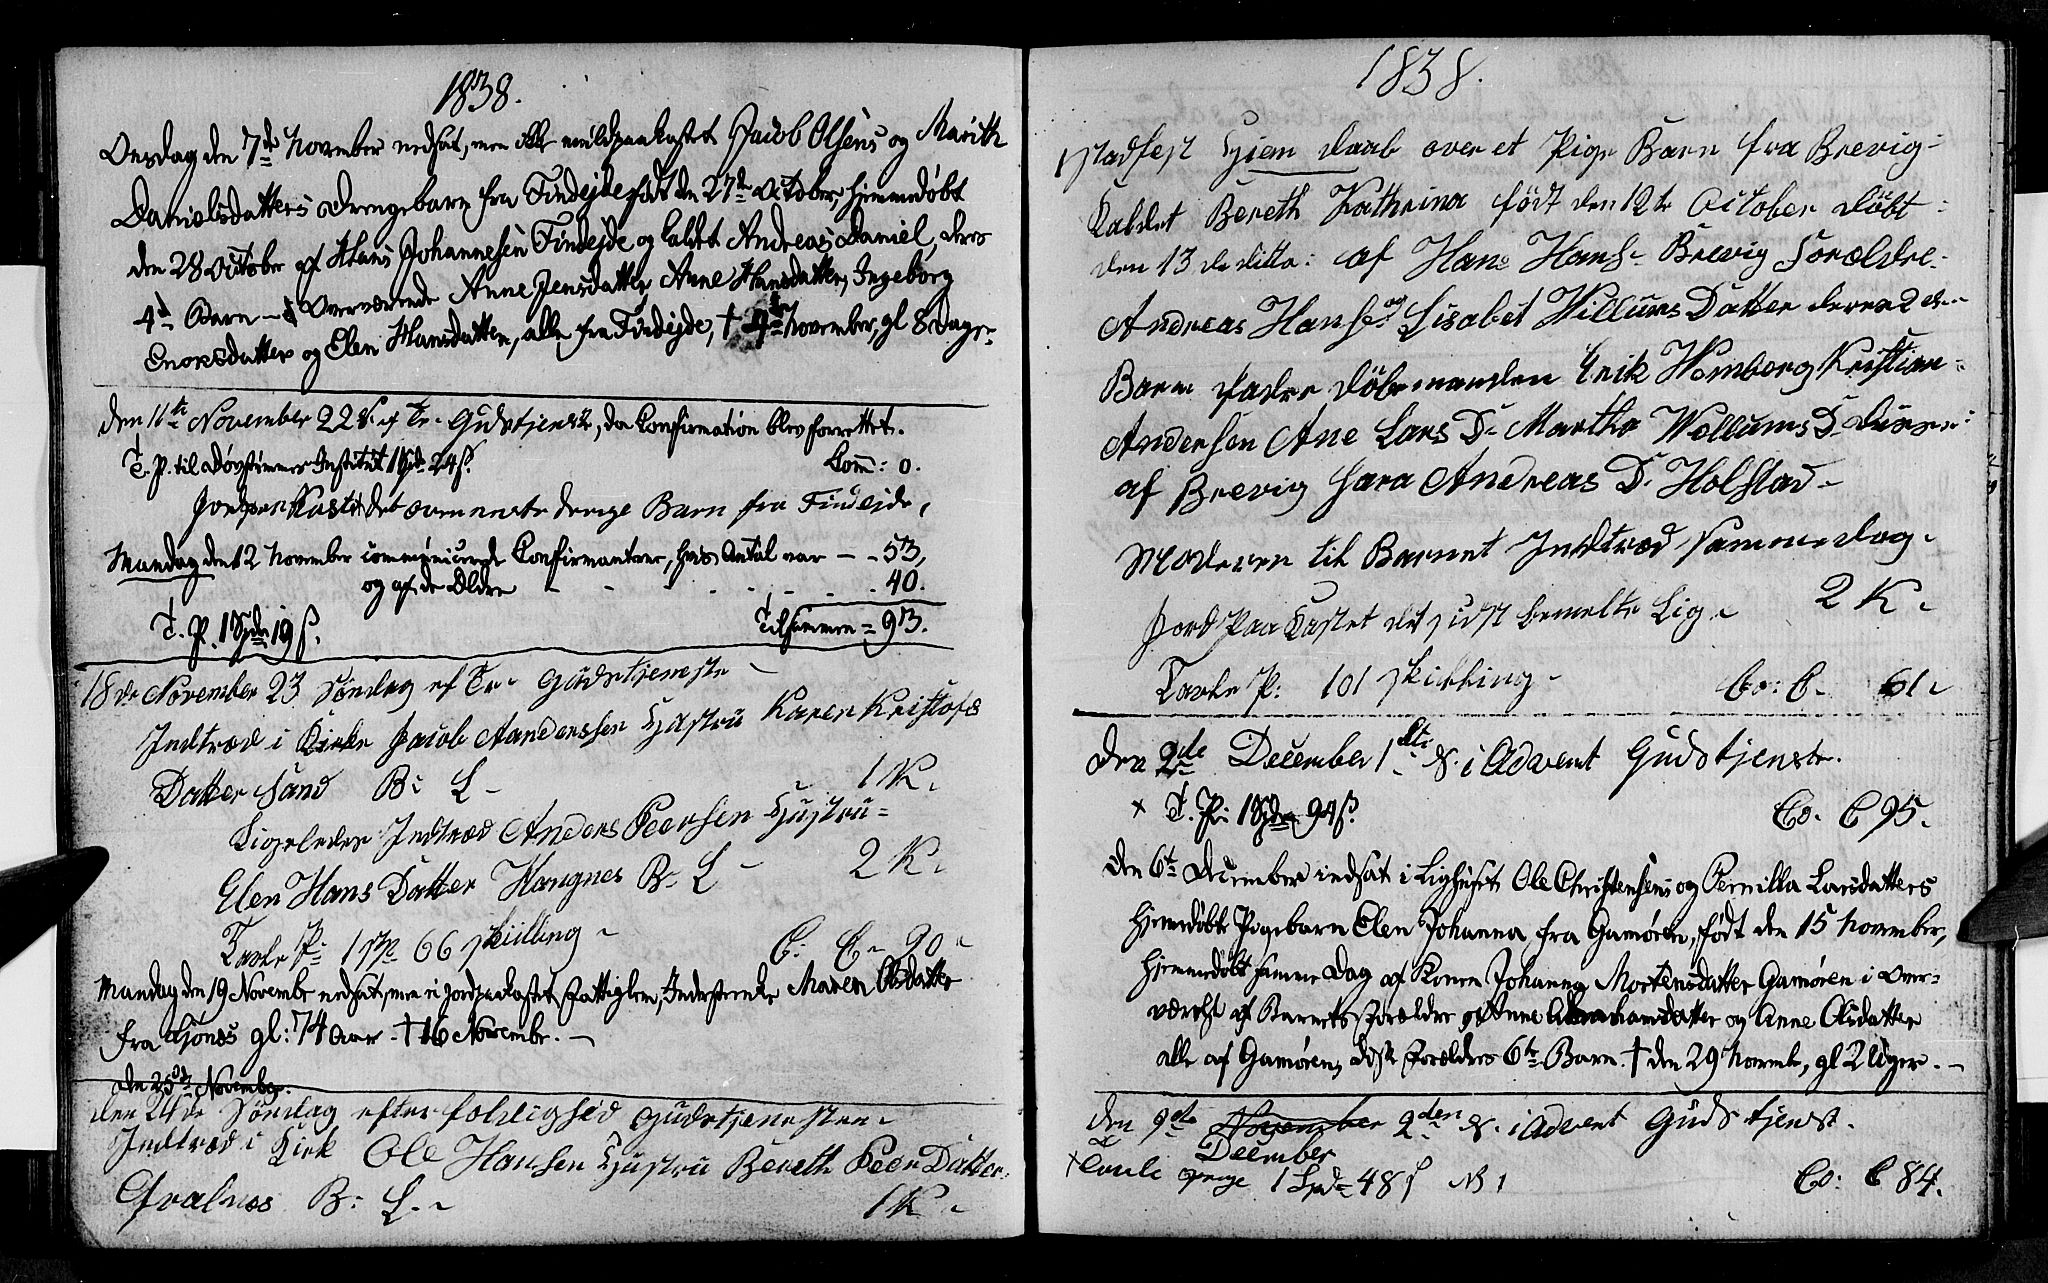 1838.
Onsdag den 7de November nedsat, men ikke muldpaakastet Jacob Olsens og Marith
Danielsdatters Drengebarn fra Findejde født den 27de October, hjemmedøbt
den 28 October af Hans Johannesen Findejde og kaldet Andreas Daniel, deres
4de Barn - Overværende Anne Jensdatter, Anne Hansdatter, Ingeborg
Enoksdatter og Elen Hansdatter, alle fra Findejde, † 4de November, gl 8 Dage.
den 11te November 22 S. ef Tr. Gudstjeneste, da Confirmation blev forrettet.
T. P. til Døvstummes Institut 1 Spd 24 s. Com: 0.
Jordpaa Kastet det ovennevnte drenge Barn fra Findejde,
Mandag den 12 November communicerede Confirmanter, hvis Antal var - - 53,
og af de Ældre - - - - - 40.
T. P. 1 Spd 19 s. Tilsammen = 93.
18de November 23 Søndag ef Tr. Gudstjeneste -
Indtræd i Kirke Jacob Aanderssen Hustru Karen Kristofs
Datter Sand B: L - 1 K.
Ligeledes Indtræd Anders Peersen Hustru =
Elen Hans Datter Hangnes B: L - 2 K.
Tavle P: 1 Sp 66 skilling - C: C - 90 -
Mandag den 19 Novembr nedsat, men ei jordpaakastet Fattiglem, Inderstenke Maren Olsdatter
fra Tjønes gl: 74 Aar - † 16 Novembr. -
den 25de November.
den 24de Søndag efter foldighed Gudstjenesten -
Indtræd i Kirk Ole Hansen Hustru Bereth Peer Datter
Qvalnæs B: L. - 1 K -
1838.
stadfest Hjem Daab over et Pige Barn fra Brevig -
Kaldet Bereth Kathrina født den 12te October døbt
den 13de ditto: af Hans Hans- Brevig Forældre -
Andreas Hans- og Lisabet Willums Datter deres 2de -
Barn Fadre Døbemanden Erik Homberg Kristian -
Andersen Ane Lars D- Martha Wollums D-
af Brevig Sara Andreas D. Holstad -
Moderen til Barnet Indtræd samme dag -
2 K -
Jord Paa Kastet det sidst bemelte Lig -
Tavle P: 101 skilling - Co: C - 61 -
Den 2de December 1ste S. i Advent Gudstjenste.
× T. P: 1 Spd 94 s. Co. C 95.
Den 6te December indsat i Lighuset Ole Christensens og Pernilla Larsdatters
hjemdøbte Pigebarn Elen Johanna fra Gamøren, født den 15 November,
hjemmedøbt samme Dag af Konen Johanna Mortensdatter Gamøren i Over-
værelse af Barnets Forældre og Anne Abrahamsdatter og Anne Olsdatter
alle af Gamøren, disse Forældres 6te Barn. † den 29 Novembr, gl 2 Uger. -
Den 9de November 2den S. i Advent Gudstjenst.
December
× Tavle penge 1 Spd 48 s NB 1 Co: C 84.